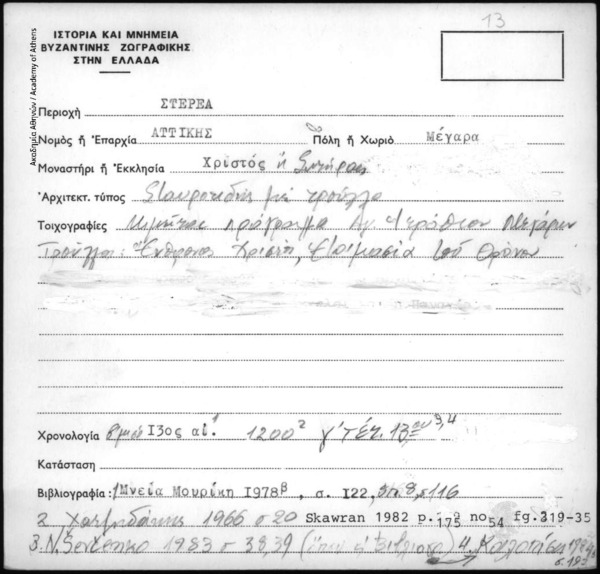 13
ΙΣΤΟΡΙΑ ΚΑΙ ΜΝΗΜΕΙΑ
ΒΥΖΑΝΤΙΝΗΣ ΖΩΓΡΑΦΙΚΗΣ
ΣΤΗΝ ΕΛΛΑΔΑ
Ακαδημία Αθηνών / Academy of Athens
Περιοχή ΣΤΕΡΕΑ
Νομός ἤ Ἐπαρχία ΑΤΤΙΚΗΣ Πόλη ἤ Χωριό Μέγαρα
Μοναστήρι ἤ Ἐκκλησία Χριστός ή Σωτήρας
Ἀρχιτεκτ. τύπος Σταυροειδής με τρούλλο
Τοιχογραφίες πρόγραμμα Μεγάρων
Τρούλλος: Ἔνθρονος Χριστός, Ἑτοιμασία τοῦ Θρόνου
Χρονολογία 13ος αἰ.¹ 1200² γ' τέτ. 13ου 3,4
Κατάσταση
Βιβλιογραφία: 1 Μνεία Μουρίκη 1978β, σ. 122, σημ. 8, σ 116
2 Χατζηδάκης 1966 σ 20 Skawran 1982 p. 175 no 54 fg. 319-35
3. N. Ševčenko 1983 σ 38, 39 4. Καλοπίση